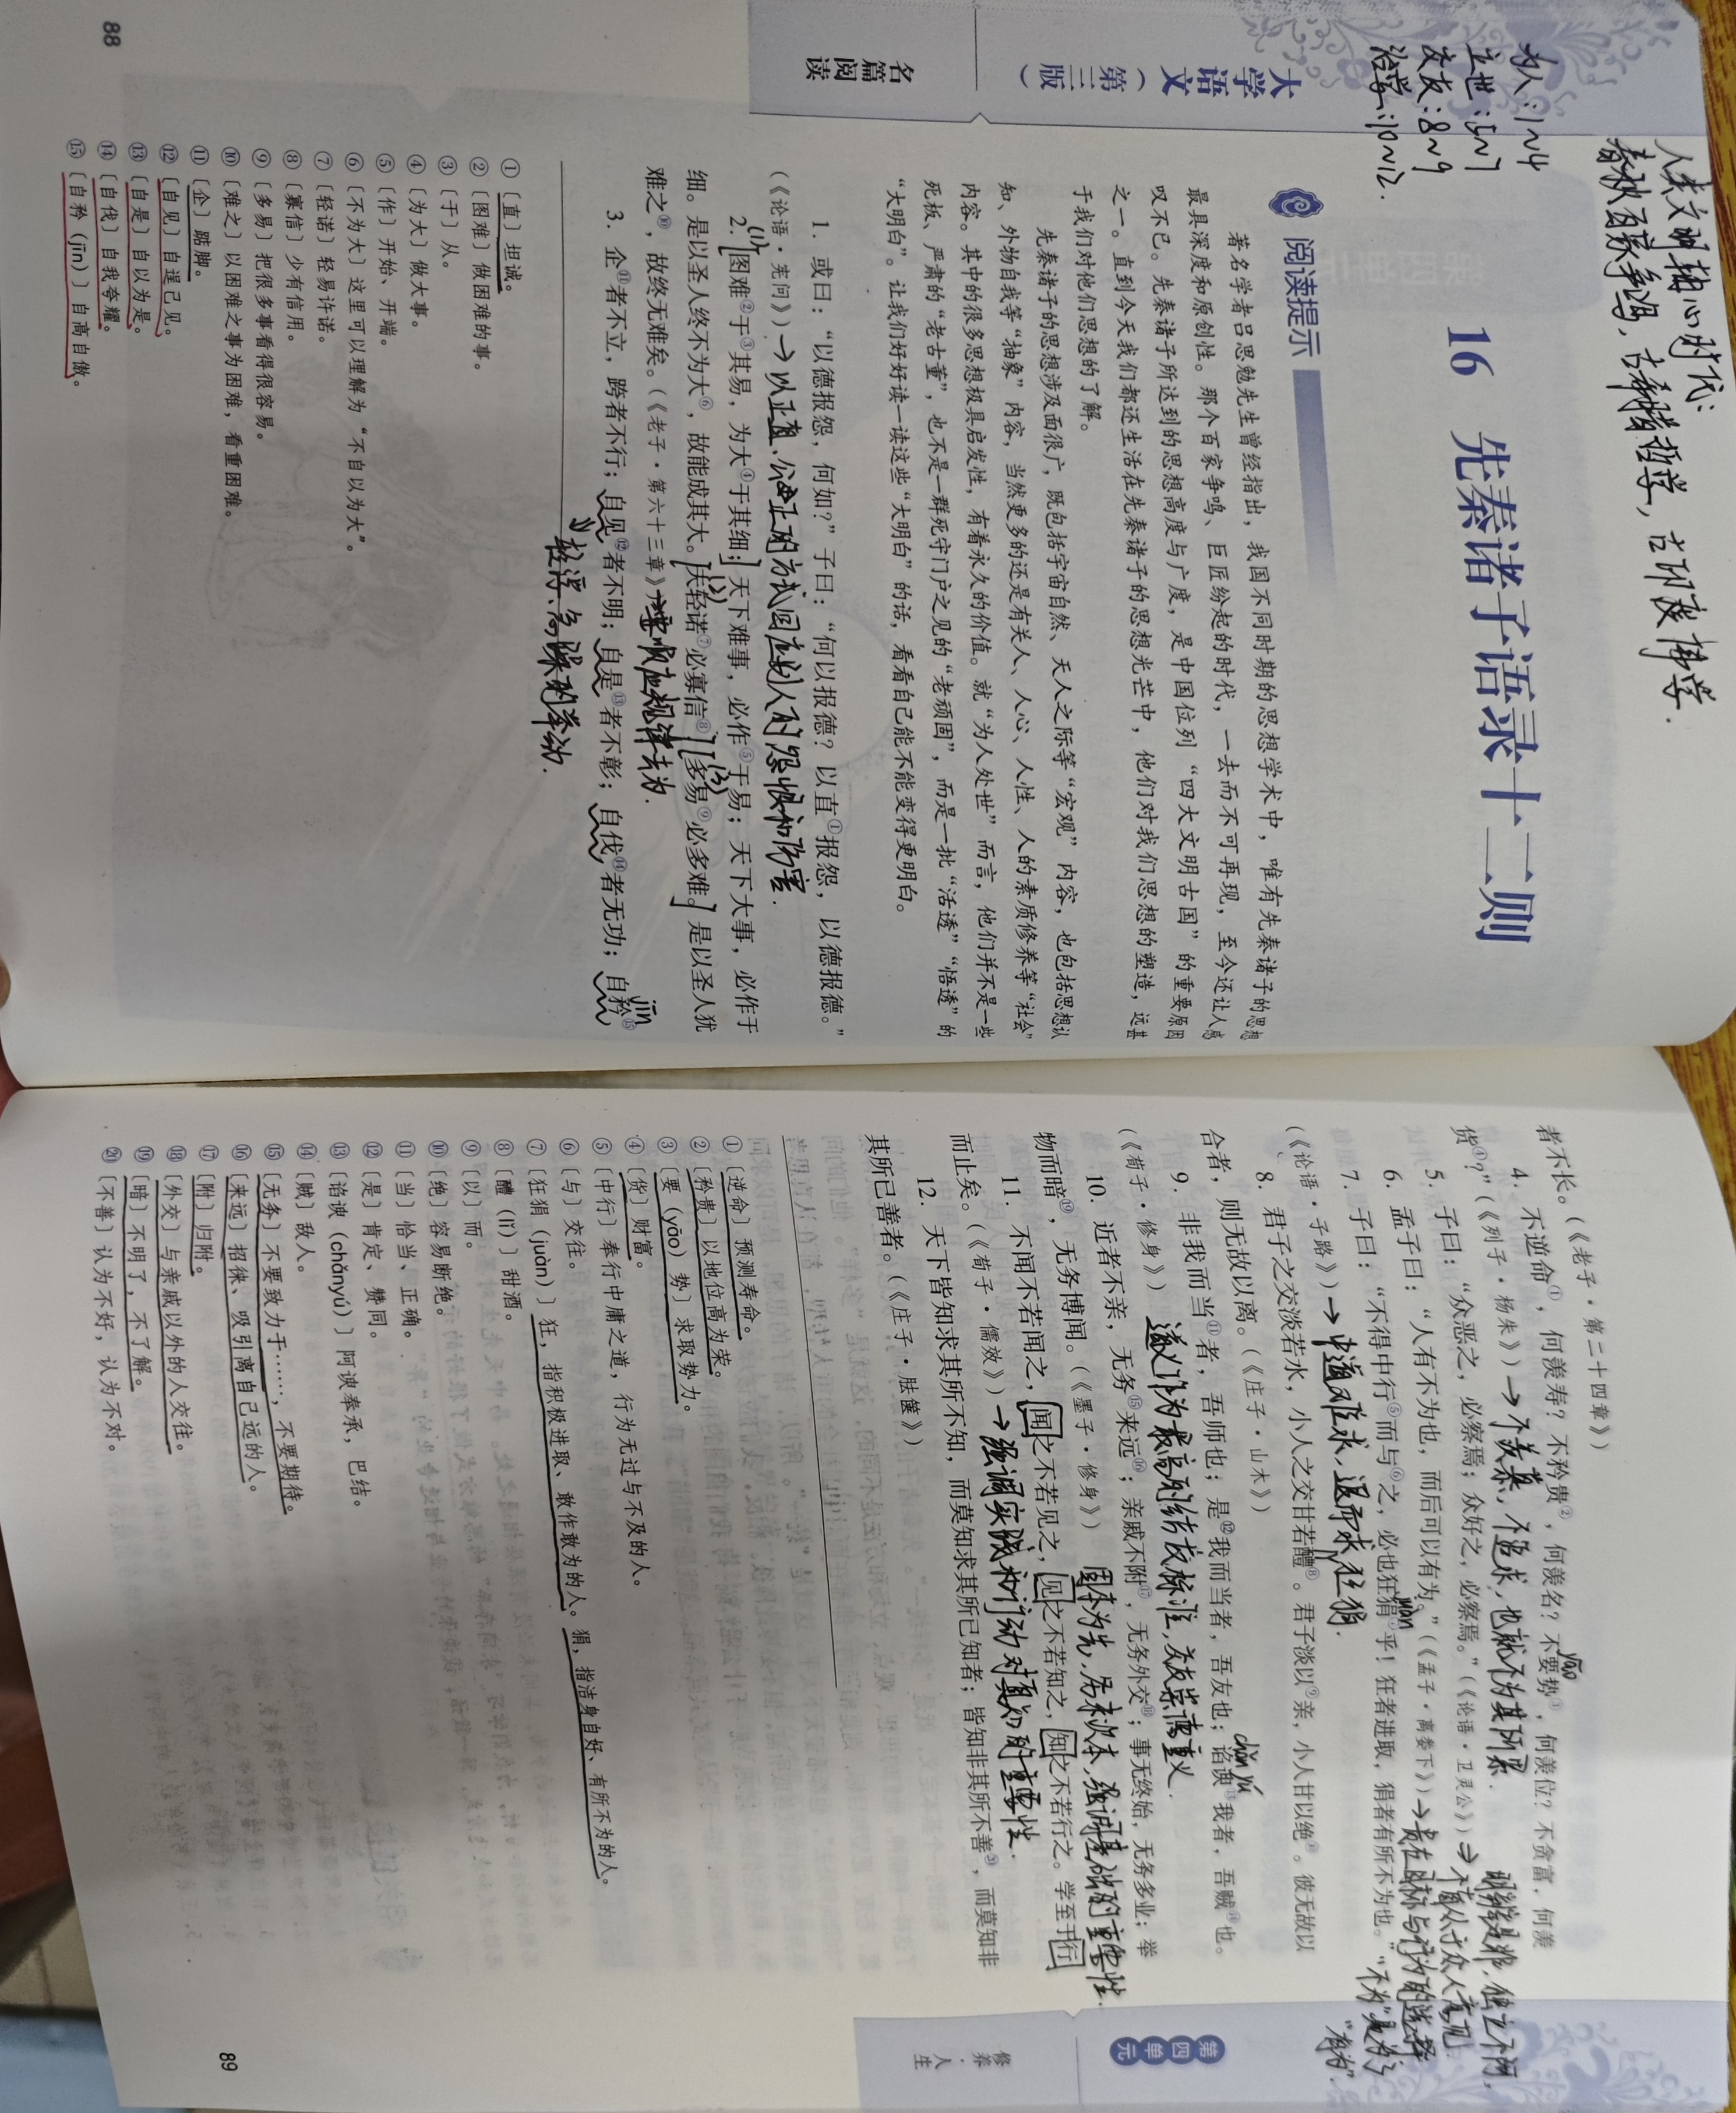 人类文明轴心时代：
春秋百家争鸣，古希腊哲学，古印度佛学．
为人：1~4
立世：5~7
交友：8~9
治学：10~12.
大学语文（第三版）
名篇阅读
16 先秦诸子语录十二则
阅读提示
著名学者吕思勉先生曾经指出，我国不同时期的思想学术中，唯有先秦诸子的思想
最具深度和原创性。那个百家争鸣、巨匠纷起的时代，一去而不可再现，至今还让人感
叹不已。先秦诸子所达到的思想高度与广度，是中国位列“四大文明古国”的重要原因
之一。直到今天我们都还生活在先秦诸子的思想光芒中，他们对我们思想的塑造，远甚
于我们对他们思想的了解。
先秦诸子的思想涉及面很广，既包括宇宙自然、天人之际等“宏观”内容，也包括思想认
知、外物自我等“抽象”内容，当然更多的还是有关人、人心、人性、人的素质修养等“社会”
内容。其中的很多思想极具启发性，有着永久的价值。就“为人处世”而言，他们并不是一些
死板、严肃的“老古董”，也不是一群死守门户之见的“老顽固”，而是一批“活透”“悟透”的
“大明白”。让我们好好读一读这些“大明白”的话，看看自己能不能变得更明白。
1. 或曰：“以德报怨，何如？”子曰：“何以报德？以直①报怨，以德报德。”
（《论语·宪问》）→以正直、公正的方式回应别人的怨恨和伤害．
2. (1)[图难②于③其易，为大④于其细；]天下难事，必作⑤于易；天下大事，必作于
细。是以圣人终不为大⑥，故能成其大。(2)[夫轻诺⑦必寡信⑧](3)[多易⑨必多难。]是以圣人犹
难之⑩，故终无难矣。（《老子·第六十三章》）→要顺应规律去为．
3. 企⑪者不立，跨者不行；自见⑫者不明；自是⑬者不彰；自伐⑭者无功；自矜⑮
jīn
轻浮、急躁的举动．
①〔直〕坦诚。
②〔图难〕做困难的事。
③〔于〕从。
④〔为大〕做大事。
⑤〔作〕开始、开端。
⑥〔不为大〕这里可以理解为“不自以为大”。
⑦〔轻诺〕轻易许诺。
⑧〔寡信〕少有信用。
⑨〔多易〕把很多事看得很容易。
⑩〔难之〕以困难之事为困难，看重困难。
⑪〔企〕踮脚。
⑫〔自见〕自逞己见。
⑬〔自是〕自以为是。
⑭〔自伐〕自我夸耀。
⑮〔自矜（jīn）〕自高自傲。
88
者不长。（《老子·第二十四章》）
4. 不逆命①，何羡寿？不矜贵②，何羡名？不要势③，何羡位？不贪富，何羡
yāo
货④？”（《列子·杨朱》）→不羡慕，不追求，也就不为其所累．
5. 子曰：“众恶之，必察焉；众好之，必察焉。”（《论语·卫灵公》）→不盲从于众人意见
明辨是非，独立不阿，
6. 孟子曰：“人有不为也，而后可以有为。”（《孟子·离娄下》）→贵在目标与行为的选择
“不为”是为了“有为”．
7. 子曰：“不得中行⑤而与⑥之，必也狂狷⑦乎！狂者进取，狷者有所不为也。”
（《论语·子路》）→中道难求，退而求狂狷．
8. 君子之交淡若水，小人之交甘若醴⑧。君子淡以⑨亲，小人甘以绝⑩。彼无故以
合者，则无故以离。（《庄子·山木》）
9. 非我而当⑪者，吾师也；是⑫我而当者，吾友也；谄谀⑬我者，吾贼⑭也。
chǎn yú
（《荀子·修身》）道义作为最高的结友标准，交友崇德重义．
10. 近者不亲，无务⑮来远⑯；亲戚不附⑰，无务外交⑱；事无终始，无务多业；举
物而暗⑲，无务博闻。（《墨子·修身》）固本为先，居末次本，强调基础的重要性．
11. 不闻不若闻之，闻之不若见之，见之不若知之，知之不若行之。学至于行
而止矣。（《荀子·儒效》）→强调实践和行动对真知的重要性．
12. 天下皆知求其所不知，而莫知求其所已知者；皆知非其所不善⑳，而莫知非
其所已善者。（《庄子·胠箧》）
①〔逆命〕预测寿命。
②〔矜贵〕以地位高为荣。
③〔要（yāo）势〕求取势力。
④〔货〕财富。
⑤〔中行〕奉行中庸之道，行为无过与不及的人。
⑥〔与〕交往。
⑦〔狂狷（juàn）〕狂，指积极进取、敢作敢为的人。狷，指洁身自好、有所不为的人。
⑧〔醴（lǐ）〕甜酒。
⑨〔以〕而。
⑩〔绝〕容易断绝。
⑪〔当〕恰当、正确。
⑫〔是〕肯定、赞同。
⑬〔谄谀（chǎnyú）〕阿谀奉承，巴结。
⑭〔贼〕敌人。
⑮〔无务〕不要致力于……，不要期待。
⑯〔来远〕招徕、吸引离自己远的人。
⑰〔附〕归附。
⑱〔外交〕与亲戚以外的人交往。
⑲〔暗〕不明了，不了解。
⑳〔不善〕认为不好，认为不对。
第四单元
修养·人生
89